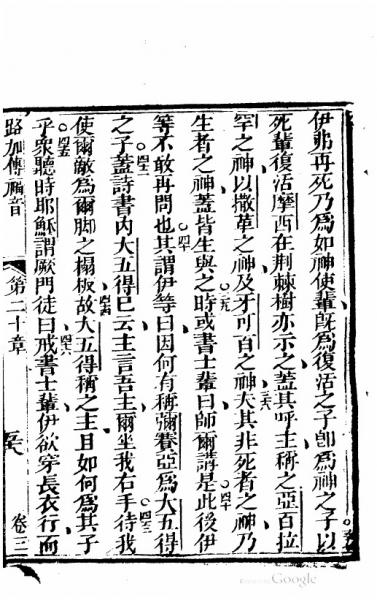 伊弗再死乃為如神使輩既為復活之子卽為神之子以
死輩復活摩西在荆棘樹亦示之蓋其呼主稱之亞百拉
罕之神以撒革之神及牙可百之神夫其非死者之神乃
生者之神蓋皆生與之時或書士輩曰師爾講是此後伊
等不敢再問也其謂伊等曰因何有稱彌賽亞為大五得
之子蓋詩書內大五得已云主言吾主爾坐我右手待我
使爾敵為爾脚之榻板故大五得稱之主且如何為其子
乎眾聽時耶穌謂厥門徒曰戒書士輩伊欲穿長衣行而
路加傳福音 第二十章 卷三
Google